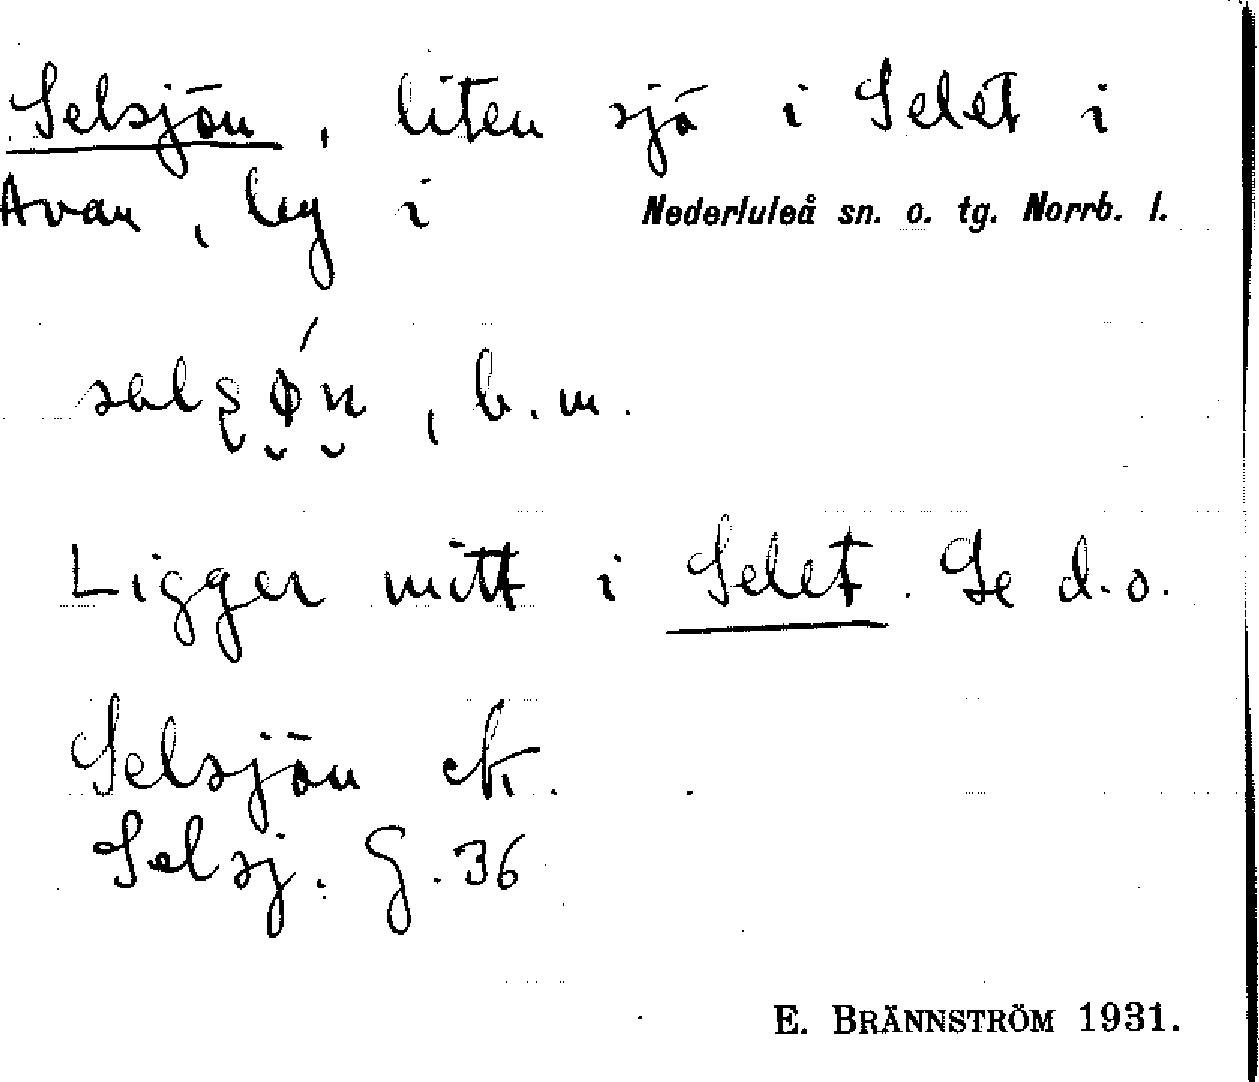 Selsjön, liten sjö i Selet i
Avan, by i Nederluleå sn. o. tg. Norrb. l.
b.m.
Ligger mitt i Selet. Se d.o.
Selsjön ek.
Selsj. G. 36
E. BRÄNNSTRÖM 1931.